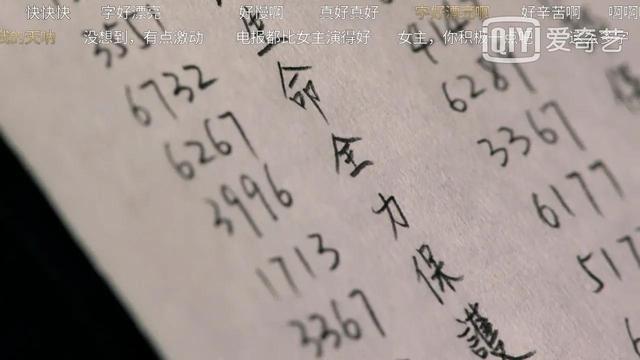 快快快 字好漂亮 好慢啊 真好真好 字好漂亮啊 好辛苦啊
没想到，有点激动 电报都比女主演得好 女主，你积极
爱奇艺
6732
6267
3996
1713
3367
命全力保護
6287
3367
6177